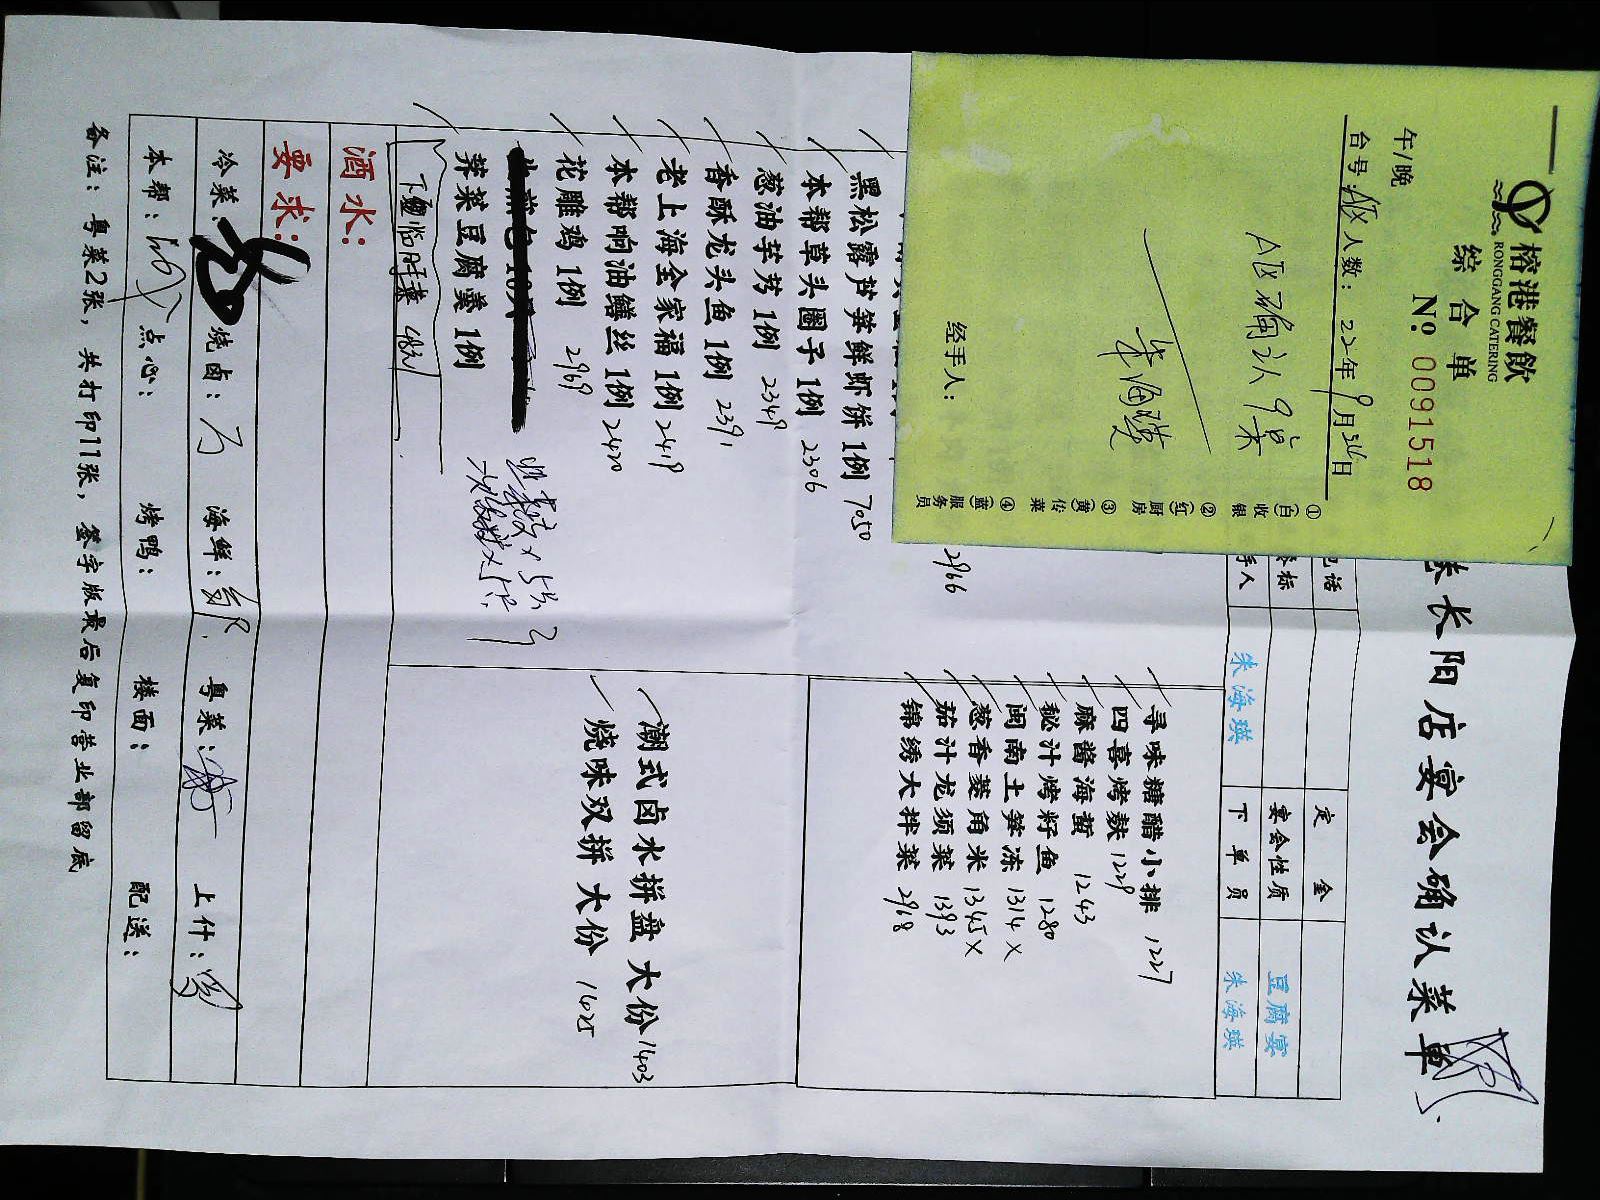 榕港餐飲
RONGGANG CATERING
综合单
№ 0091518
午/晚
台号：A区 人数： 22年9月 日
A区确认9桌
朱海瑛
经手人：
①(白)收银 ②(红)厨房 ③(黄)传菜 ④(蓝)服务员
长阳店宴会确认菜单
定金
宴会性质 豆腐宴
手人 朱海瑛 下单员 朱海瑛
2966
黑松露芦笋鲜虾饼1例 7050
本帮草头圈子1例 2306
葱油芋艿1例 2349
香酥龙头鱼1例 2391
老上海全家福1例 2419
本帮响油鳝丝1例 2420
花雕鸡1例 2969
荠菜豆腐羹1例
寻味糖醋小排 1227
四喜烤麸 1229
麻酱海蜇 1243
秘汁烤籽鱼 1280
闽南土笋冻 1314 X
葱香菱角米 1345 X
茄汁龙须菜 1393
锦绣大拌菜 2968
潮式卤水拼盘 大份 1403
烧味双拼 大份 1425
酒水：
要求：
冷菜： 烧卤： 海鲜： 粤菜： 上什：
本帮： 点心： 烤鸭： 楼面： 配送：
备注：粤菜2张，共打印11张，签字版最后复印营业部留底